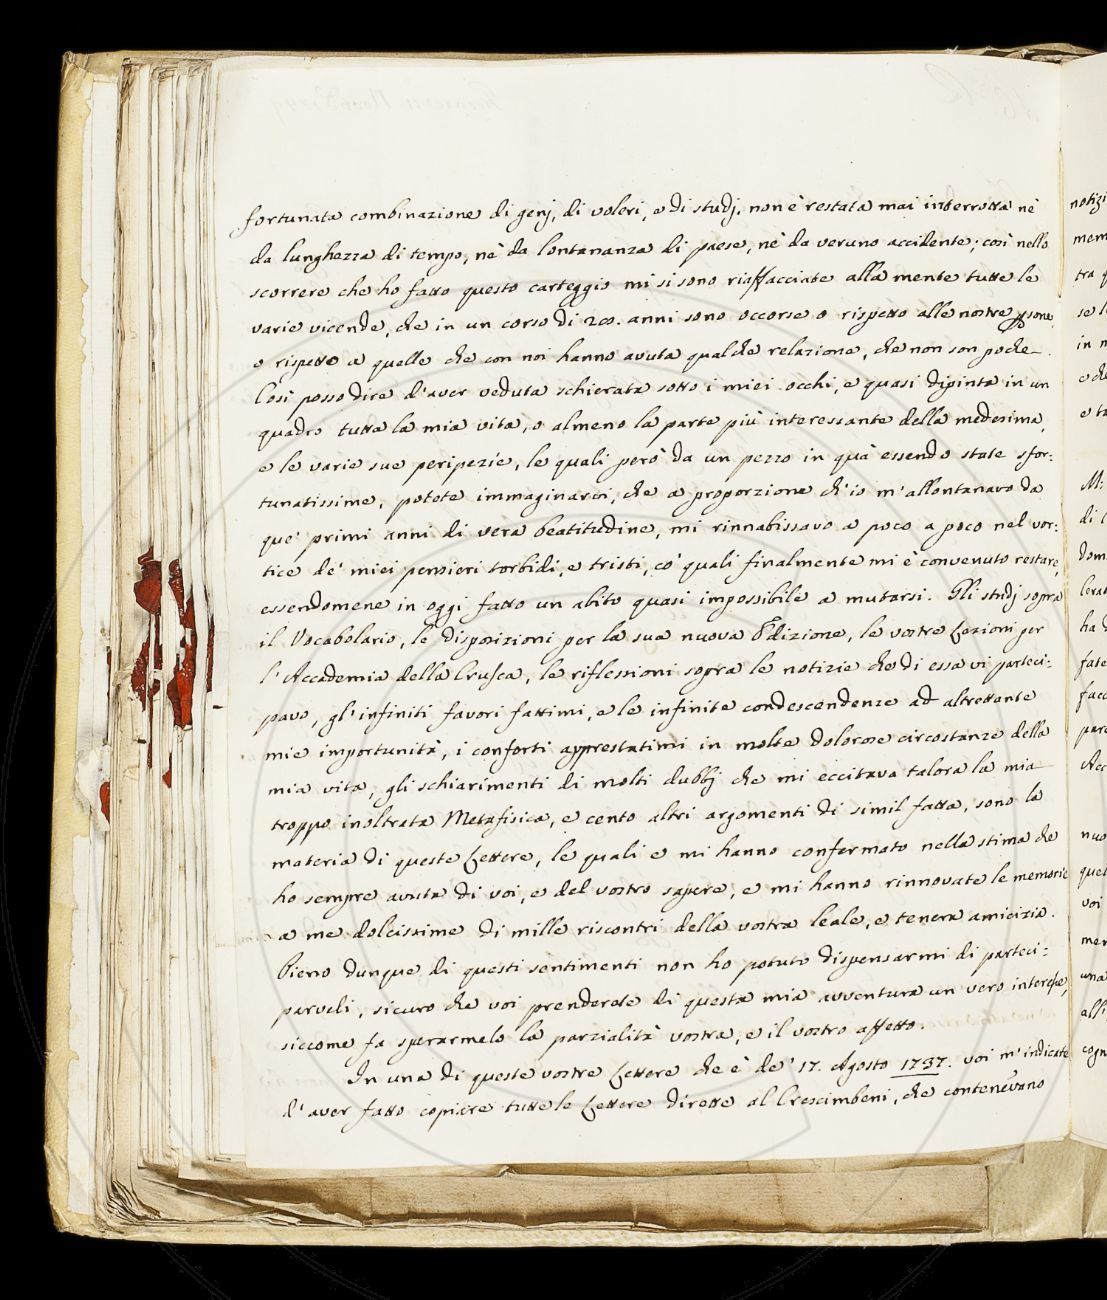 fortunata combinazione di genj, di voleri, e di studj, non è restata mai interrotta nè
da lunghezza di tempo, nè da lontananza di paese, nè da veruno accidente; così nello
scorrere che ho fatto questo carteggio mi si sono riaffacciate alla mente tutte le
varie vicende, che in un corso di 20. anni sono occorse o rispetto alle nostre psone,
o rispetto a quelle che con noi hanno avuta qualche relazione, che non son poche.
Così posso dire d'aver veduta schierata sotto i miei occhi, e quasi dipinta in un
quadro tutta la mia vita, o almeno la parte più interessante della medesima,
e le varie sue peripezie, le quali però da un pezzo in quà essendo state sfor:
tunatissime, potete immaginarvi, che a proporzione ch'io m'allontanavo da
que' primi anni di vera beatitudine, mi rinnabissavo a poco a poco nel vor:
tice de' miei pensieri torbidi, e tristi, co' quali finalmente mi è convenuto restare,
essendomene in oggi fatto un abito quasi impossibile a mutarsi. Gli studj sopra
il Vocabolario, le disposizioni per la sua nuova Edizione, le vostre Lezioni per
l'Accademia della Crusca, le riflessioni sopra le notizie che di essa vi parteci:
pavo, gl'infiniti favori fattimi, e le infinite condescendenze ad altrettante
mie importunità, i conforti apprestatimi in molte dolorose circostanze della
mia vita, gli schiarimenti di molti dubbj che mi eccitava talora la mia
troppo inoltrata Metafisica, e cento altri argomenti di simil fatta, sono la
materia di queste Lettere, le quali e mi hanno confermato nella stima che
ho sempre avuta di voi, e del vostro sapere, e mi hanno rinnovate le memorie
a me dolcissime di mille riscontri della vostra leale, e tenera amicizia.
Pieno dunque di questi sentimenti non ho potuto dispensarmi di parteci:
parveli, sicuro che voi prenderete di questa mia avventura un vero interesse,
siccome fa sperarmelo la parzialità vostra, e il vostro affetto.
In una di queste vostre Lettere che è de' 17. Agosto 1737. voi m'indicate
d'aver fatto copiare tutte le Lettere dirette al Crescimbeni, che contenevano